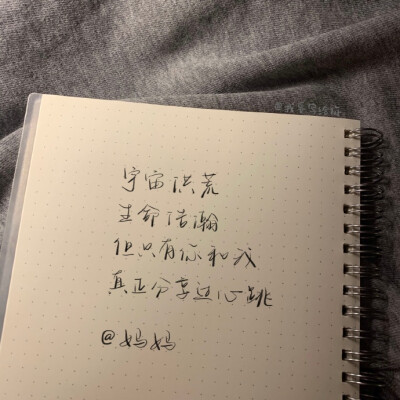 宇宙洪荒
生命浩瀚
但只有你和我
真正分享过心跳
@妈妈